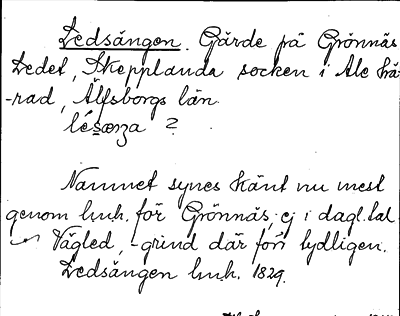 Ledsängen. Gärde på Grönnäs
Ledet, Skepplanda socken i Ale hä-
-rad, Älfsborgs län.
lésæŋa ?
Namnet synes känt nu mest
genom hnh. för Grönnäs, ej i dagl. tal.
Vägled, -grind där förr tydligen.
Ledsängen hnh. 1829.